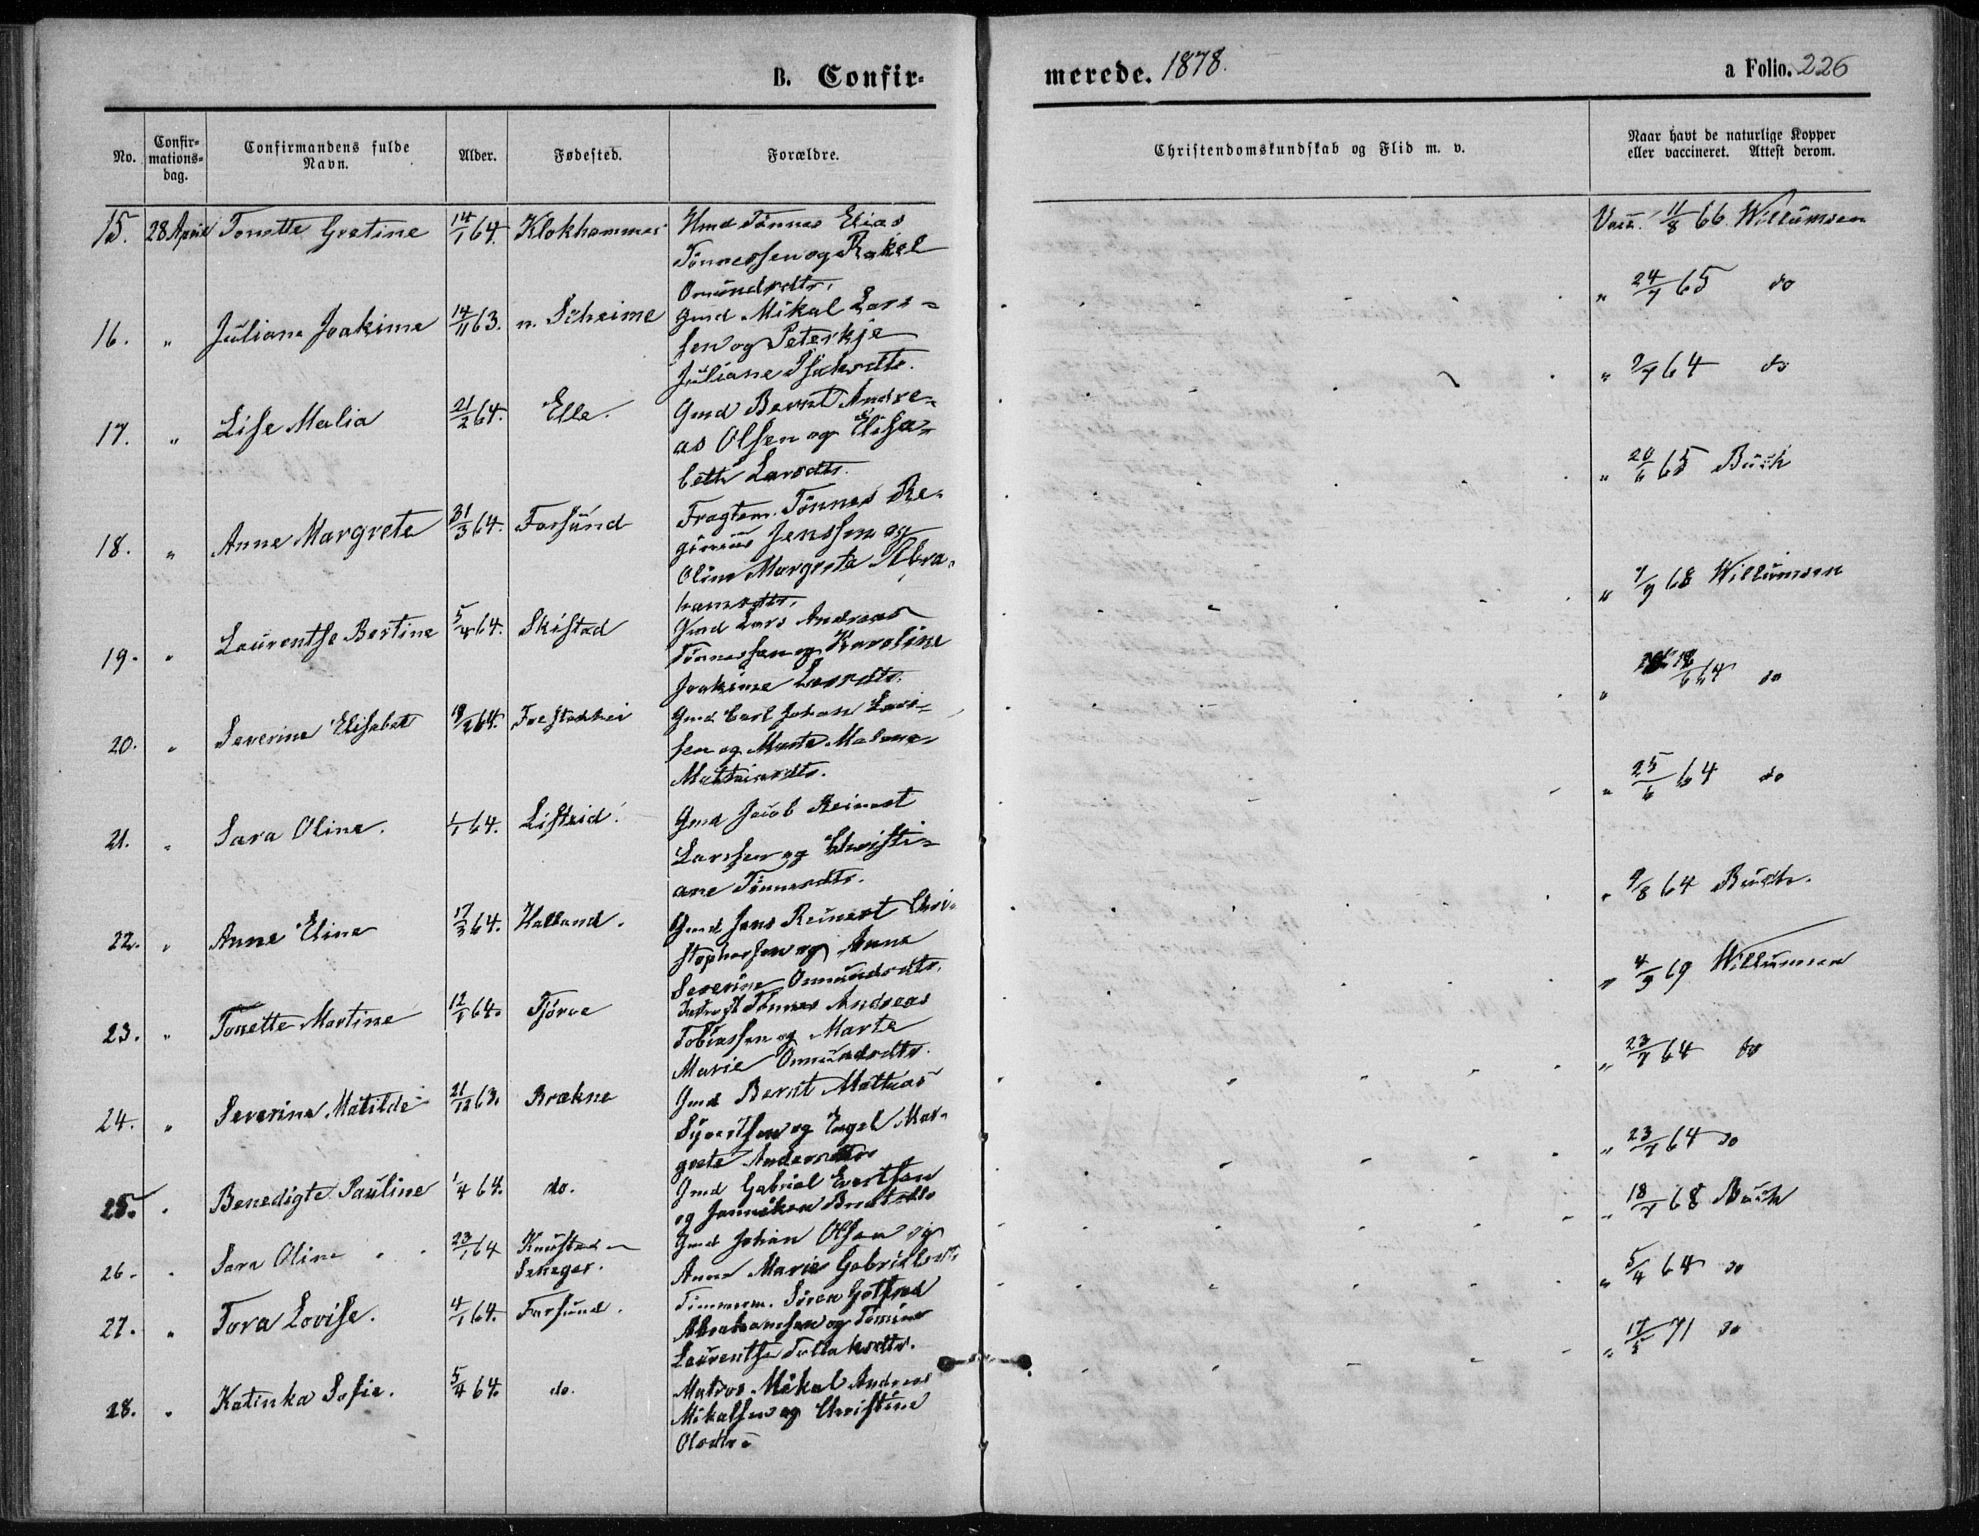 B. Confir-
merede. 1878.
a Folio. 226
No.
Confir-
mations-
dag.
Confirmandens fulde
Navn.
Alder.
Fødested.
Forældre.
Christendomskundskab og Flid m. v.
Naar havt de naturlige Kopper
eller vaccineret. Attest derom.
15. 28 April Tonette Gretine 14/1 64. Klokhammer Gmd Tønnes Elias Vacc. 11/8 66 Willumsen
Tønnessen og Rakel
Omundsdtr.
16. " Juliane Joakime 14/11 63. n. Scheime Gmd. Mikal Lars- " 24/7 65 do
sen og Peterkje
Juliane Isaksdtr.
17. " Lise Malia 21/2 64. Elle. Gmd Bernt Andre- " 2/7 64 do
as Olsen og Elisa-
beth Larsdtr.
18. " Anne Margrete 31/3 64. Farsund Fragtem. Tønnes Re- " 20/6 65 Buch
ginius Jenssen og
Oline Margreta Abra-
hamsdtr.
19. " Laurentse Bertine 5/4 64. Skistad Gmd Lars Andreas " 7/9 68 Willumsen
Tønnessen og Karoline
Joakime Larsdtr.
20. " Severine Elisabet 18/2 64. Gmd Carl Johan Lars- " 64 do
sen og Marte Malene
Mathiasdtr.
21. " Sara Oline. 1/1 64. Listeid. Gmd Jacob Reinert " 25/6 64 do
Larssen og Christi-
ane Tønnesdtr.
22. " Anne Eline 17/3 64. Halland. Gmd Jens Reinert Chri- " 9/8 64 Buch.
stophersen og Anne
Severine Omundsdtr.
23. " Tonette Martine 12/1 64. Tjørve Tønnes Andreas " 4/9 69 Willumsen
Tobiassen og Marte
Marie Omundsdtr.
24. " Severine Matilde 21/12 63. Brækne Gmd Bernt Mathias " 23/7 64 do
Syvertsen og Engel Mar-
grete Andersdtr
25. " Benedigte Pauline 1/4 64. do. Gmd Gabriel Evertsen " 23/7 64 do
og Janniken Berntsdtr
26. " Sara Oline 23/1 64 Knustad- Gmd Johan Olsen og " 18/7 68 Buch
Anne Marie Gabrielsdtr.
27. " Tora Lovise. 4/1 64. Farsund. Timmerm. Sören Gotfred " 5/4 64 do
Abrahamsen og Tomine
Laurentse Tollaksdtr.
28. " Katinka Sofie. 5/4 64. do. Matros Mikal Andreas " 17/5 71 do
Mikalsen og Christine
Olsdtr